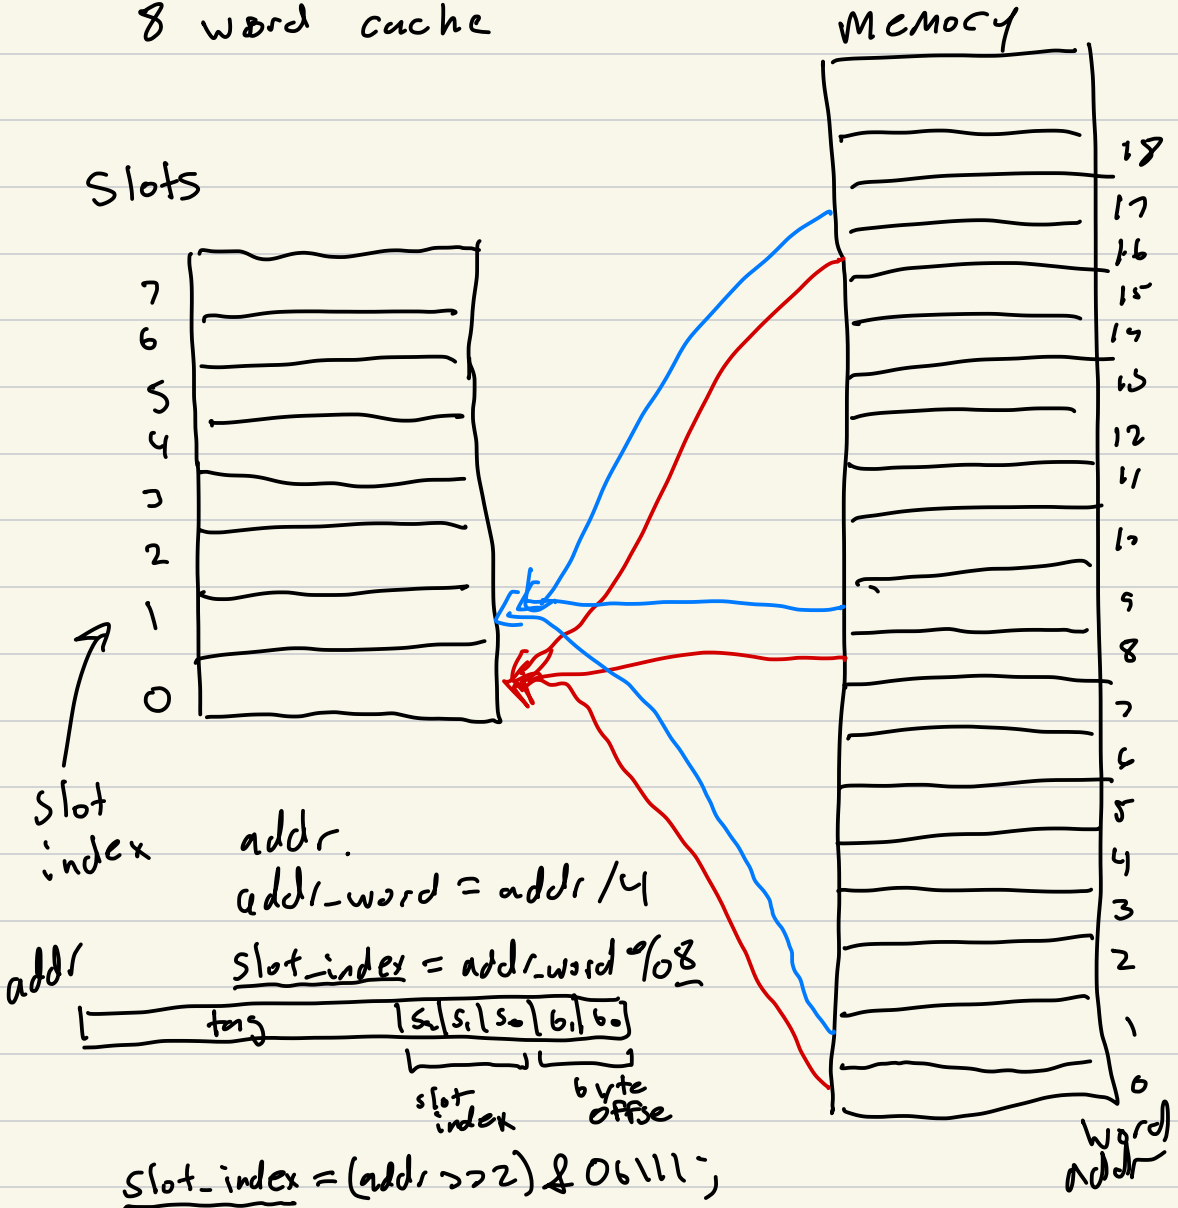 8 word cache
Memory
Slots
7
6
5
4
3
2
1
0
slot
index
18
17
16
15
14
13
12
11
10
9
8
7
6
5
4
3
2
1
0
word
addr
addr.
addr_word = addr/4
slot_index = addr_word %8
addr
tag s2 s1 s0 b1 b0
slot
index
byte
offse
slot_index = (addr >>2) & 0b111;